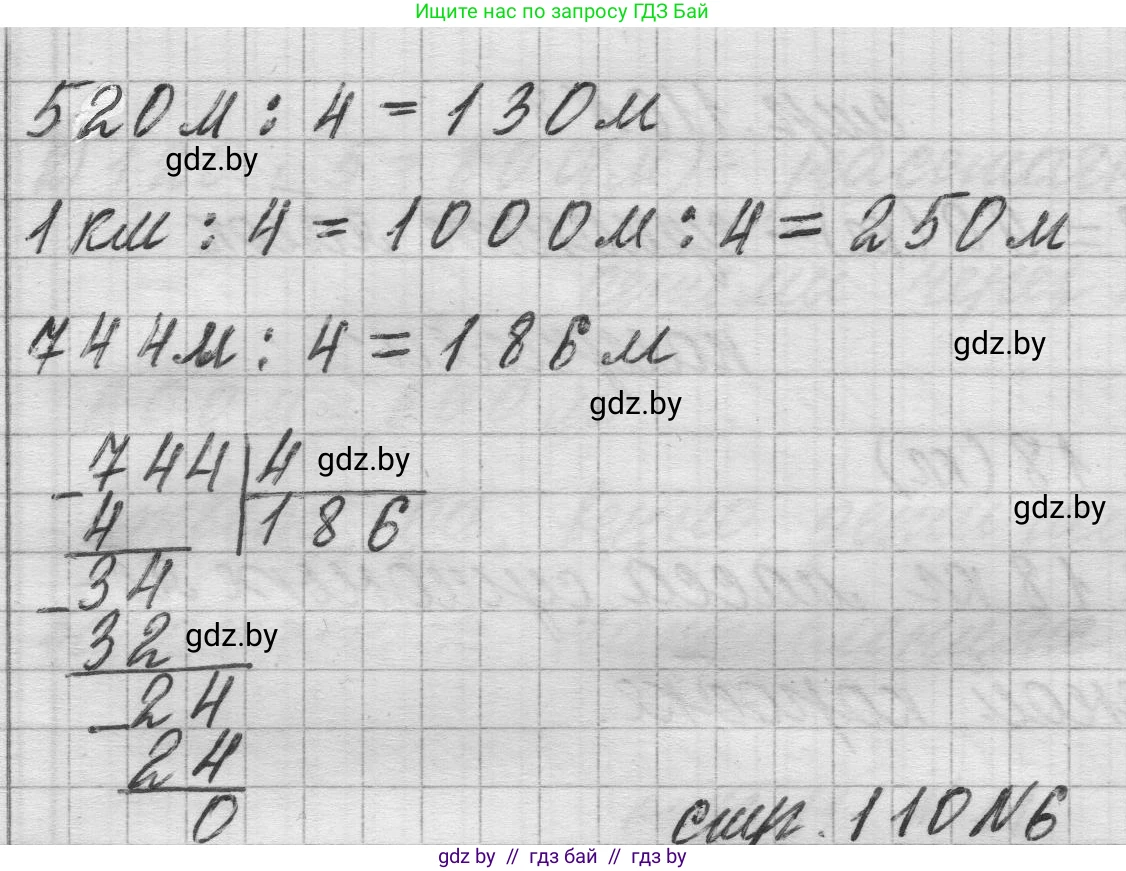 Ищите нас по запросу ГДЗ Бай
520м : 4 = 130м
gdz.by
1км : 4 = 1000м : 4 = 250м
744м : 4 = 186м
gdz.by
gdz.by
744 4 gdz.by
- 4 186
gdz.by
34
- 32 gdz.by
24
- 24
0
стр. 110 N6
gdz by // гдз бай // gdz by